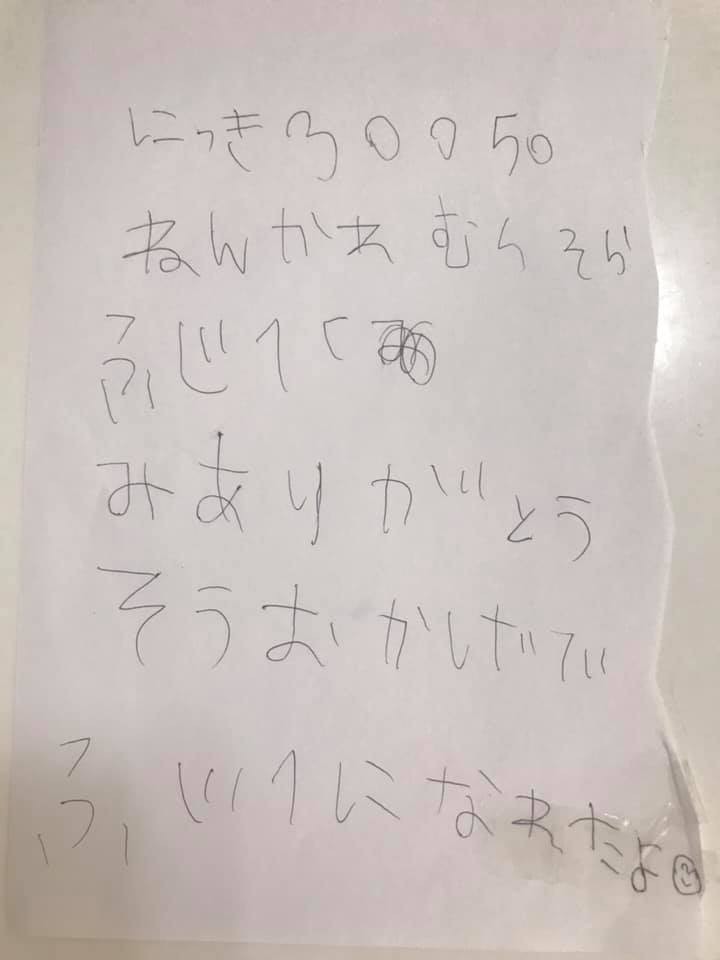 にっき30050
ねんかれ むら そら
ふじ1く
みありがとう
そうおかげで
ふじ1になれたよ